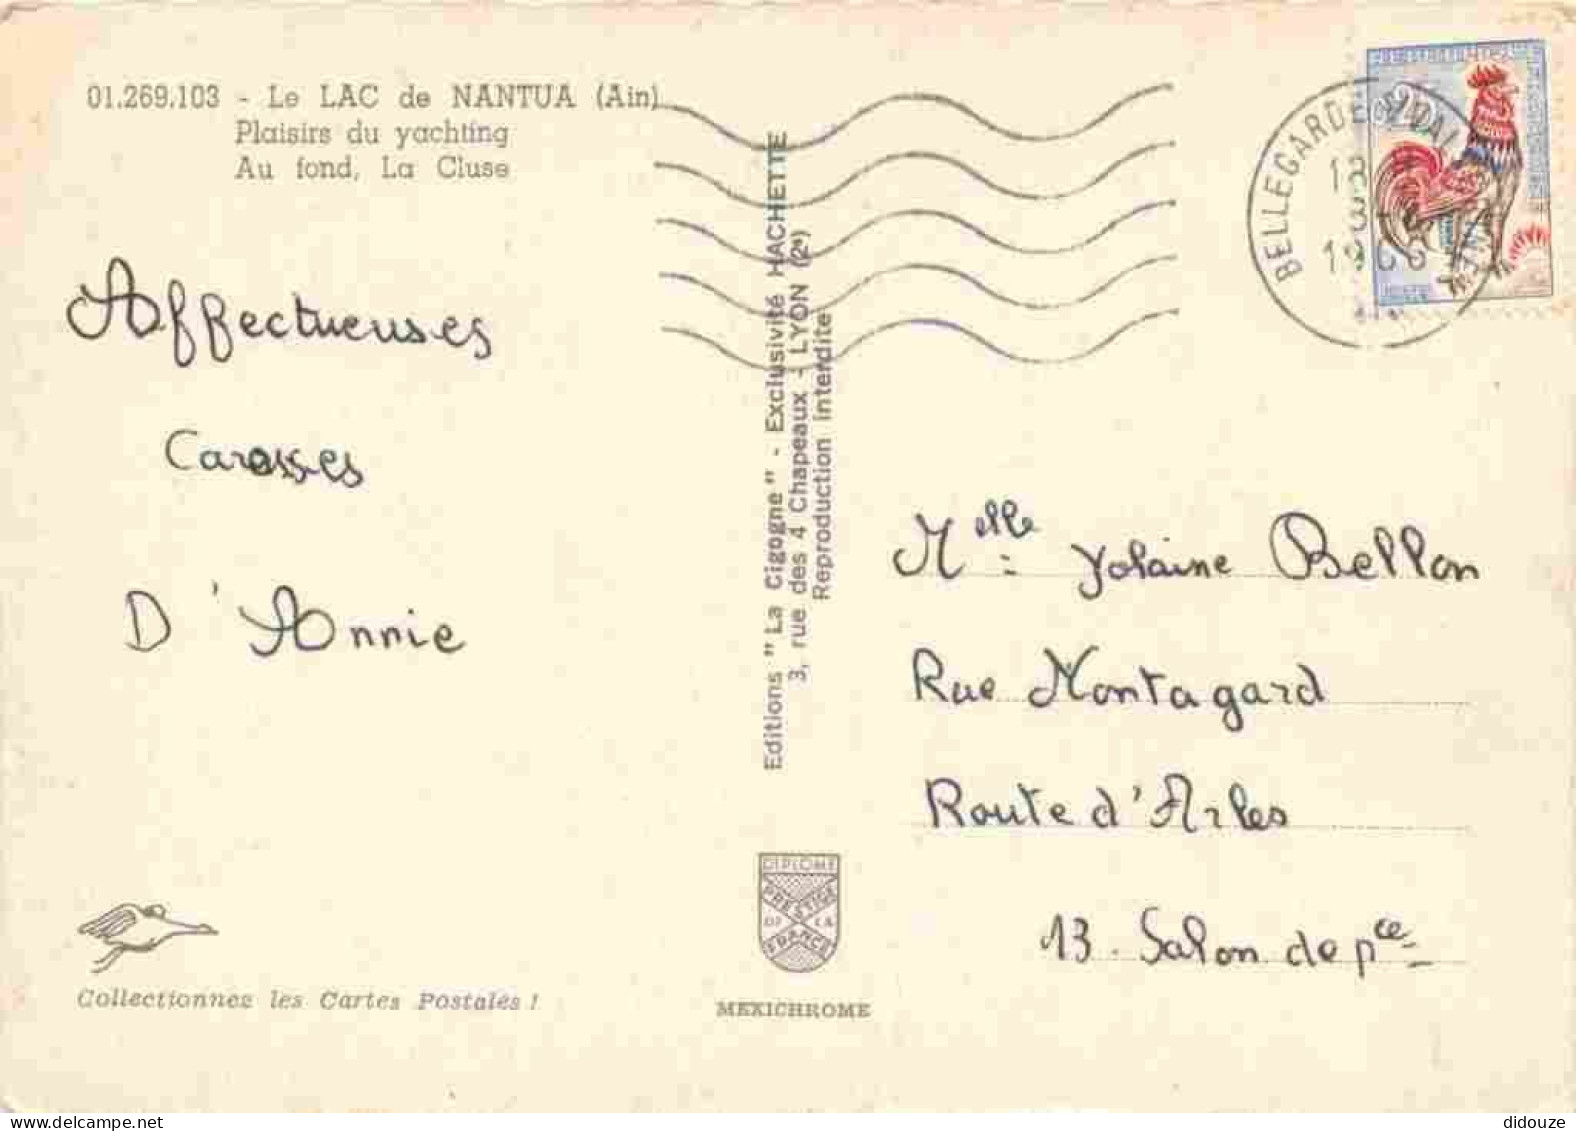 01.269.103 - Le LAC de NANTUA (Ain)
Plaisirs du yachting
Au fond, La Cluse
Affectueuses
Caresses
D'Annie
Editions "La Cigogne" - Exclusivité HACHETTE
3, rue des 4 Chapeaux - LYON (2e)
Reproduction interdite
BELLEGARDE
Melle Yolaine Bellon
Rue Montagard
Route d'Arles
13. Salon de pce
DIPLOME
PRESTIGE
DE LA
FRANCE
MEXICHROME
Collectionnez les Cartes Postales !
didouze
delcampe.net